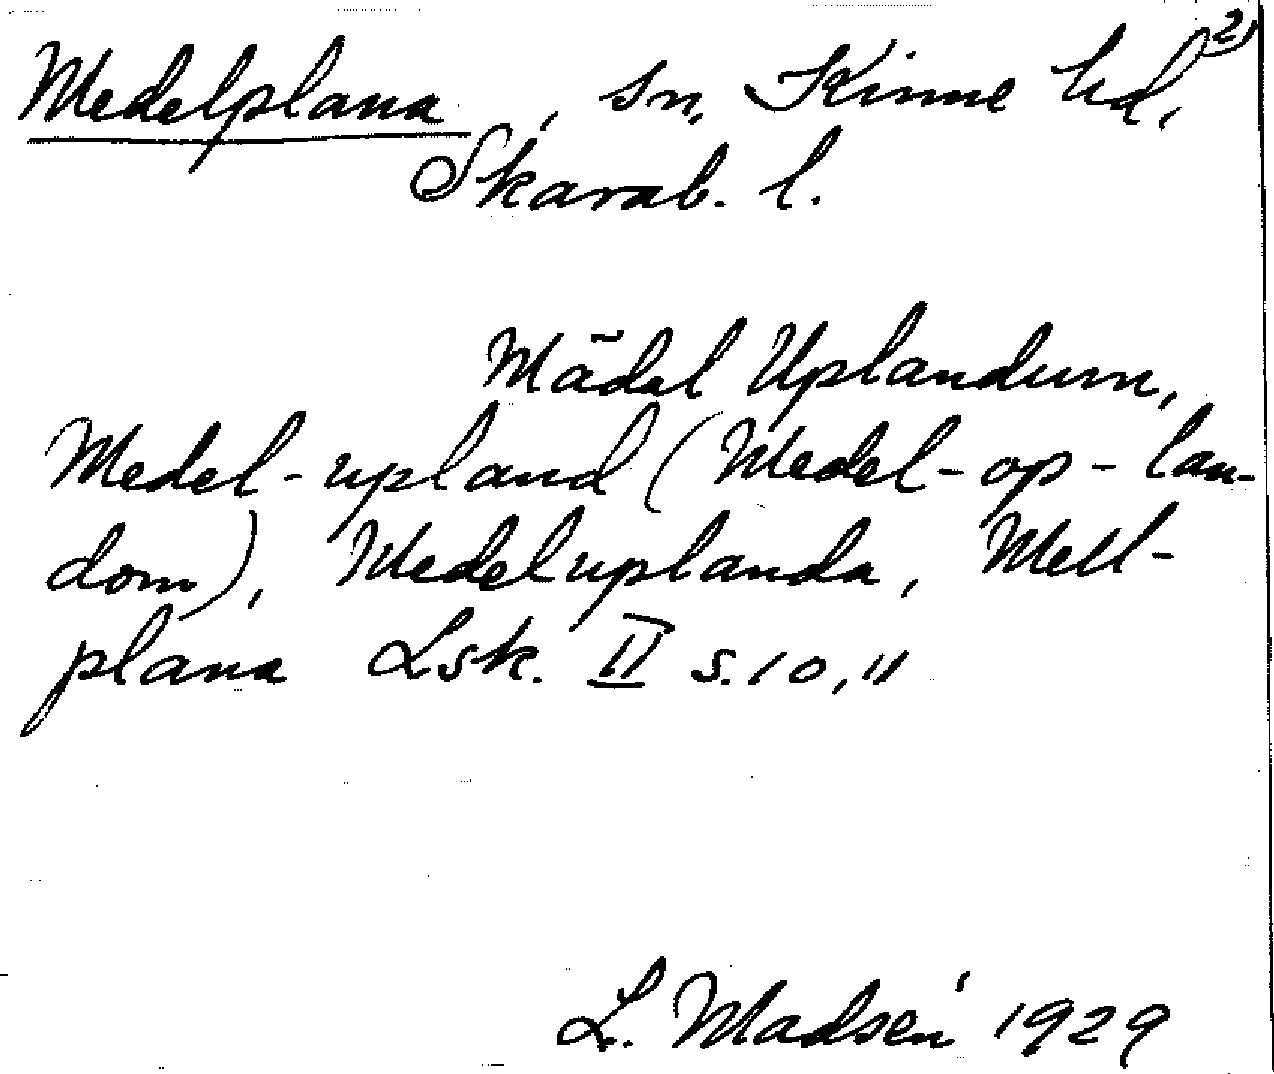 Medelplana, sn, Kinne hd, 2)
Skarab. l.
Mädel Uplandum,
Medel-upland (Medel-op-lan-
dom), Medeluplanda, Mell-
plana Lsk. II s. 10, 11
L. Madsén 1929